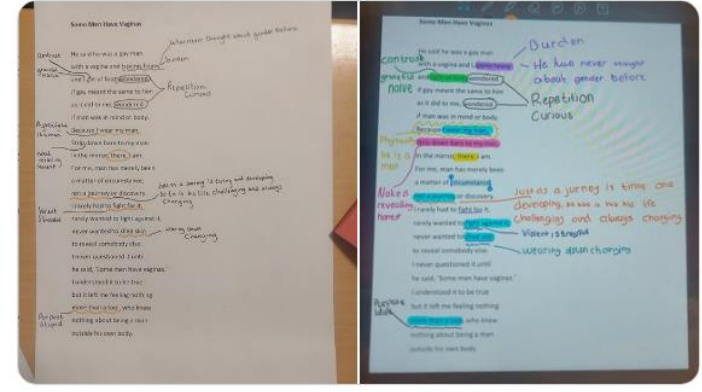 Some Men Have Vaginas
He said he was a gay man
with a vagina and I,
and I, wondered
if gay meant the same to him
as it did to me, wondered
if man was in mind or body.
Because I wear my man,
Strip down bare to my man
in the mirror there I am.
For me, man has merely been
a matter of circumstance,
not a journey or discovery.
I rarely had to fight for it,
never wanted to shed skin
to reveal somebody else.
I never questioned it until
he said, 'Some men have vaginas.'
I understood it to be true
but it left me feeling nothing
more than a fool, who knew
nothing about being a man
outside his own body.
contrast
grateful
naive
who never thought about gender before
burden
Repetition
Curious
naked
revealing
honest
Just as a journey is tiring and developing
so he is his life, challenging and always
changing
Violent
wearing down
Changing
Purpose
Some Men Have Vaginas
He said he was a gay man
with a vagina and I,
wondered
if gay meant the same to him
as it did to me, wondered
if man was in mind or body.
Because I wear my man,
Strip down bare to my man
in the mirror there I am.
For me, man has merely been
a matter of circumstance,
not a journey or discovery.
I rarely had to fight for it,
rarely wanted to fight against it,
never wanted to shed skin
to reveal somebody else.
I never questioned it until
he said, 'Some men have vaginas.'
I understood it to be true
but it left me feeling nothing
more than a fool, who knew
nothing about being a man
outside his own body.
contrast
grateful
naive
Burden
He has never thought
about gender before
Repetition
Curious
he is a
man
Naked
revealing
honest
Just as a journey is tiring and
developing, so he is his life
challenging and always changing
Violent
wearing down changing
Purpose